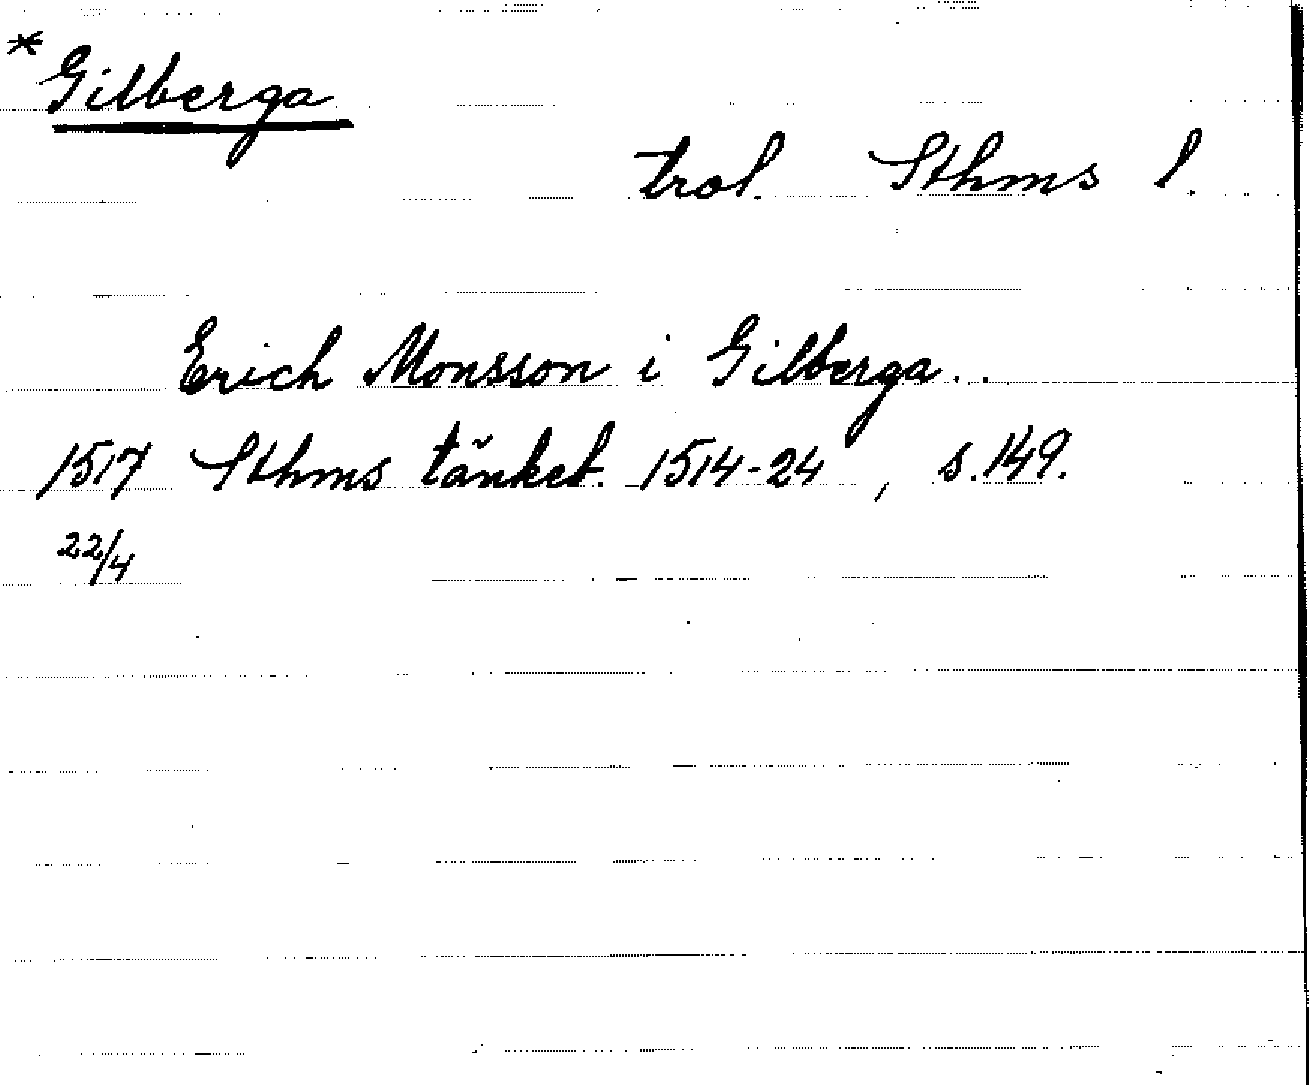 * Gilberga
trol. Sthms l.
Erich Monsson i Gilberga..
1517 Sthms tänkeb. 1514-24, s. 149.
22/4